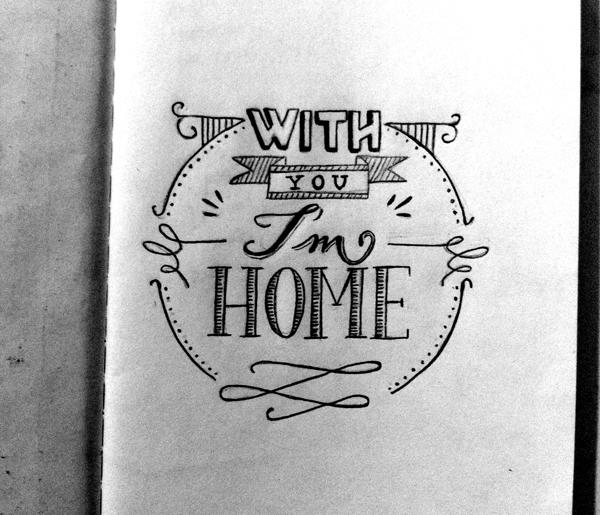 WITH
YOU
I'm
HOME